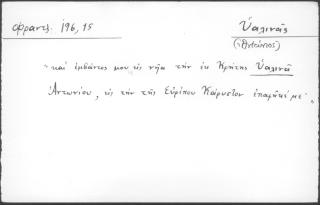 Φραντζ. 196, 15
Ὑαλινᾶς
(Ἀντώνιος)
"καὶ ἐμβάντος μου εἰς νῆα τὴν ἐκ Κρήτης Ὑαλινᾶ
Ἀντωνίου, εἰς τὴν τῆς Εὐρίπου Κάρυστον ἐπαρῆκέ με"